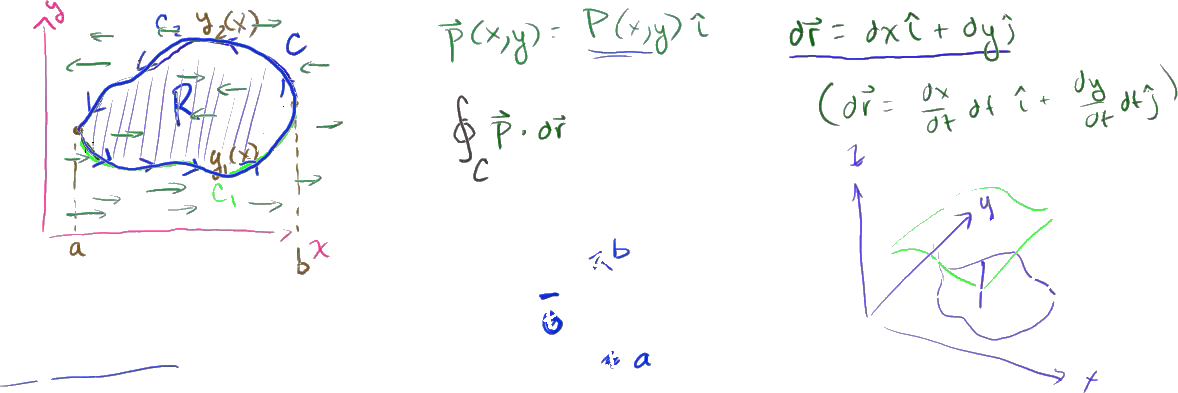 y
C₂ y₂(x)
C
R
y₁(x)
C₁
a
b
x
p⃗(x,y) = P(x,y) î
∮_C p⃗ · dr⃗
b
a
dr⃗ = dx î + dy ĵ
(dr⃗ = dx/dt dt î + dy/dt dt ĵ)
z
y
x